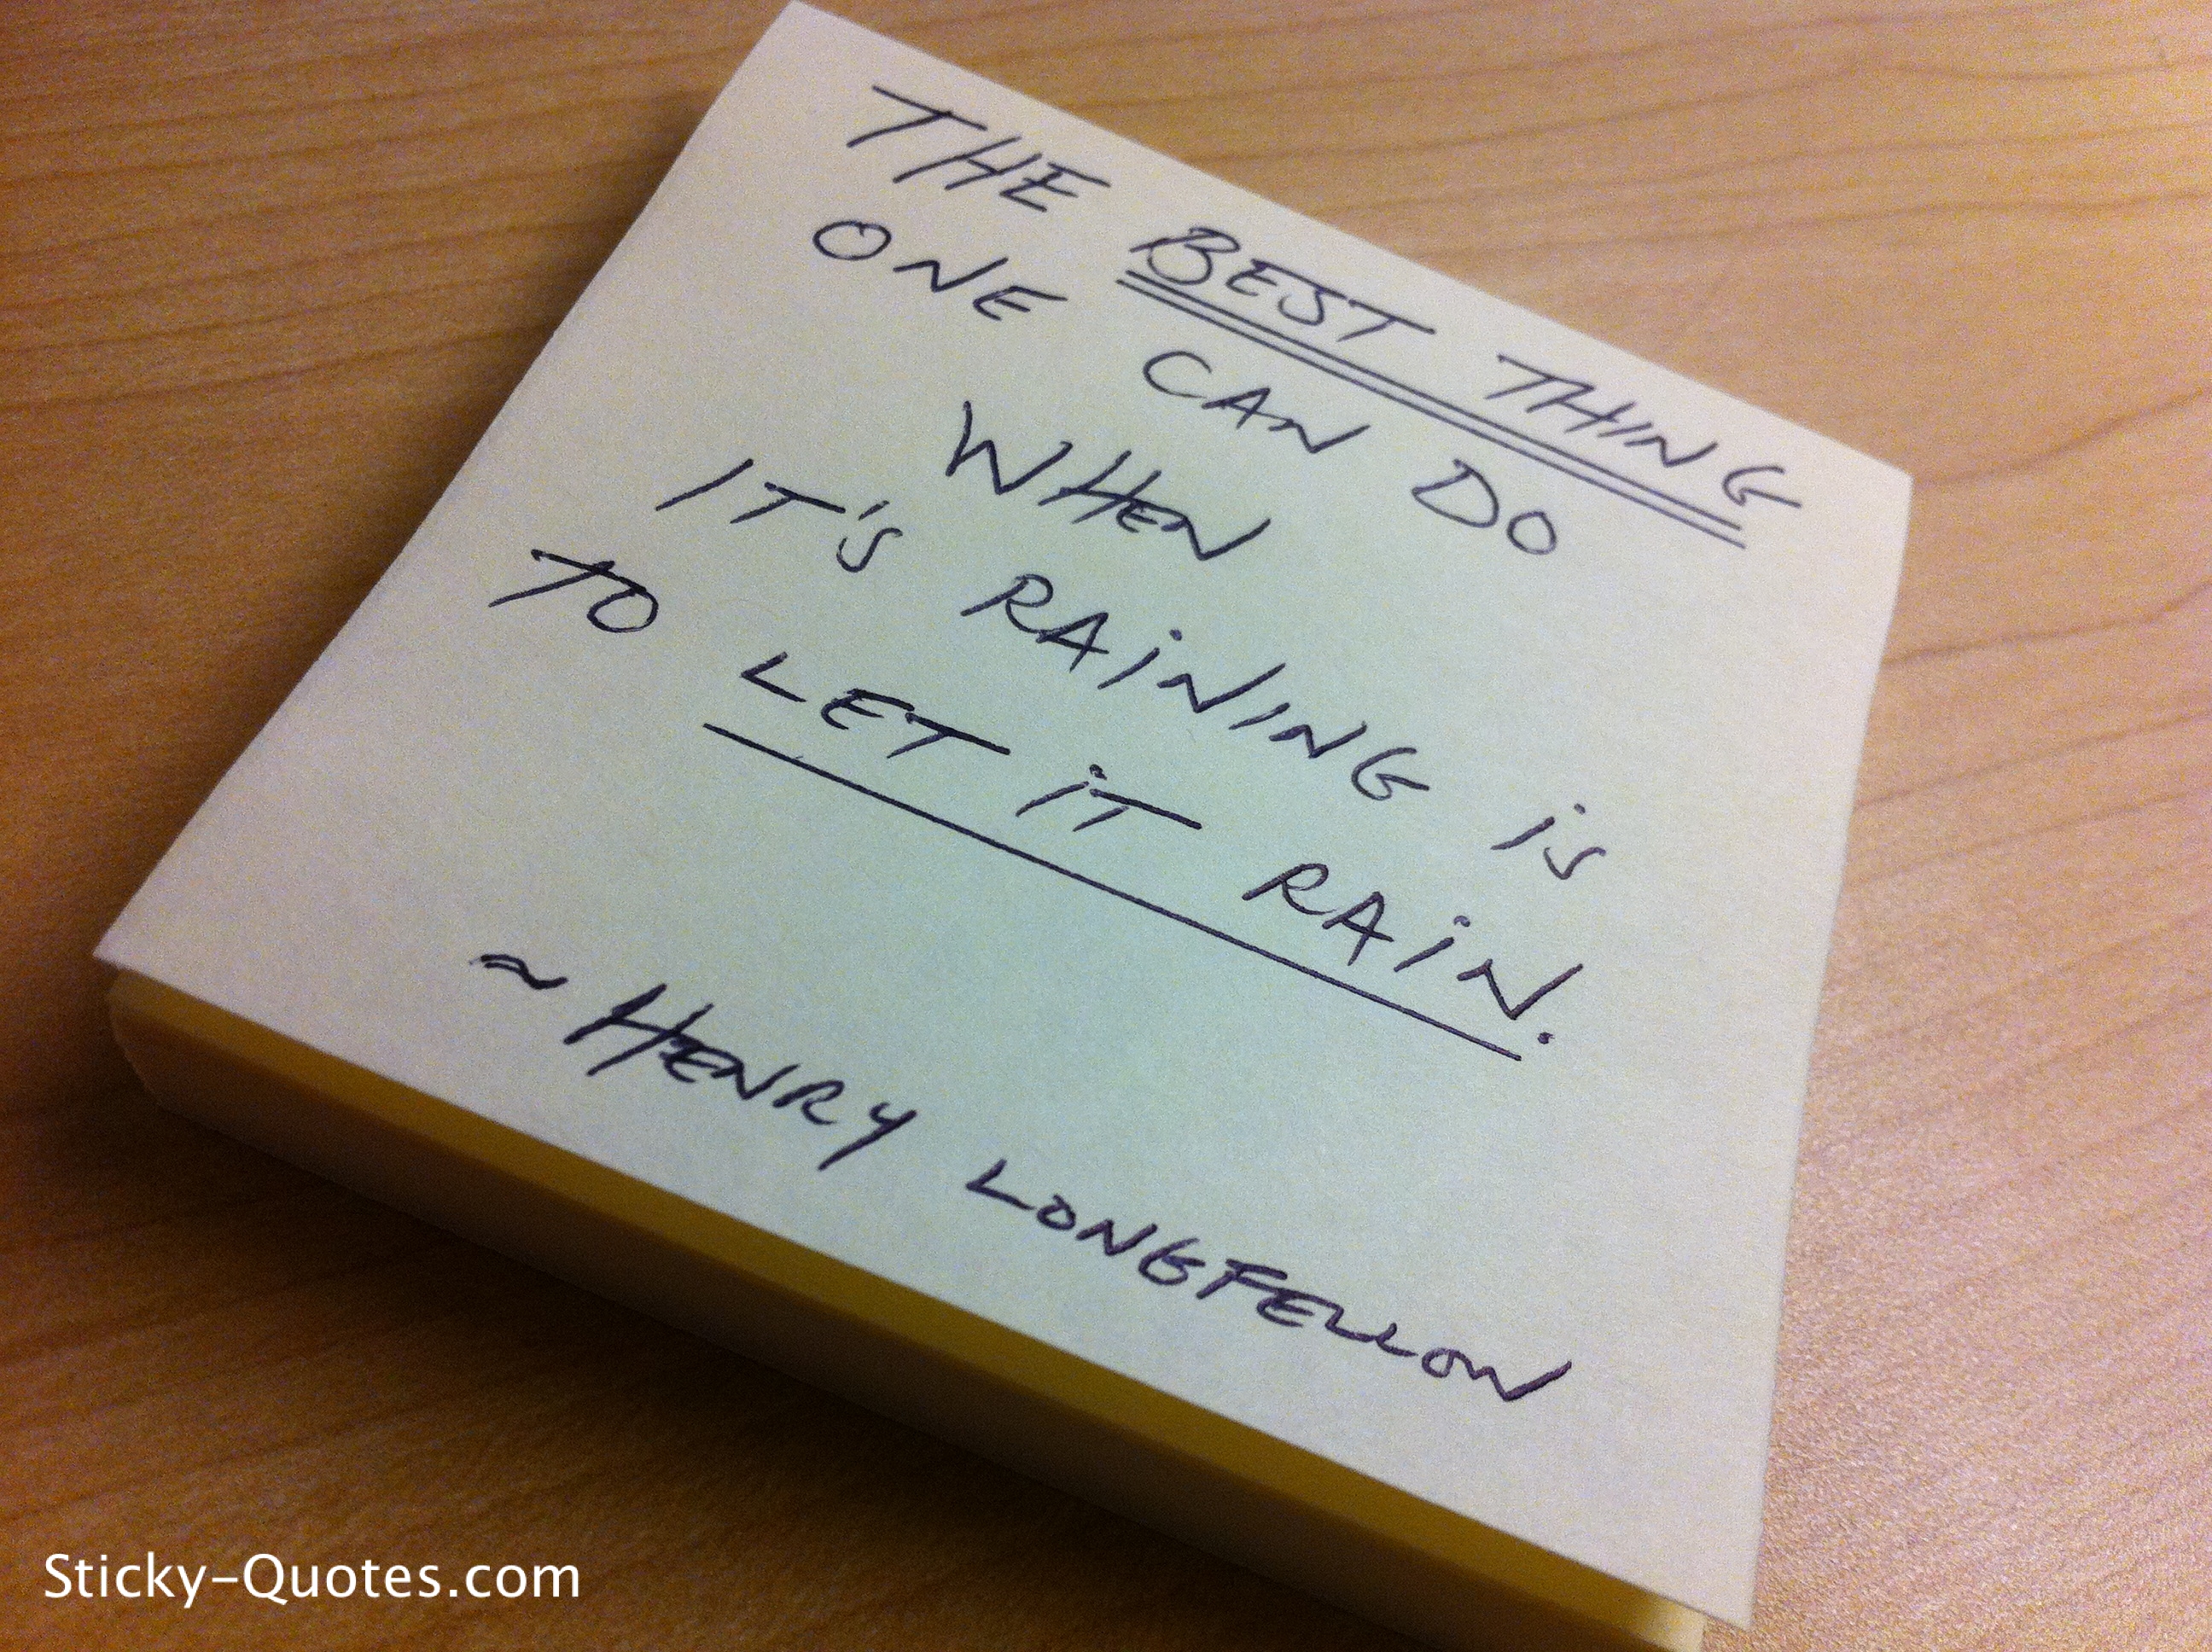 THE BEST THING
ONE CAN DO
WHEN
IT'S RAiNING is
TO LET iT RAiN.
~ HENRY LONGFELLOW
Sticky-Quotes.com